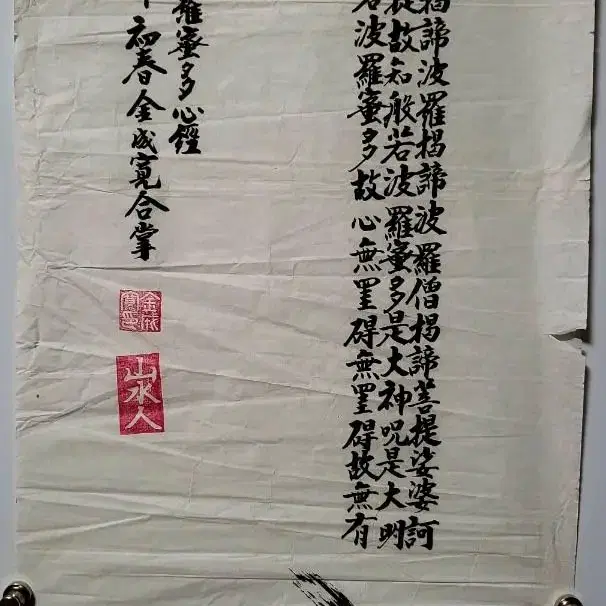 揭諦波羅揭諦波羅僧揭諦菩提娑婆訶
提故知般若波羅蜜多是大神呪是大明
若波羅蜜多故心無罣碍無罣碍故無有
羅蜜多心經
初春金成寬合掌
金成寬印
山水人